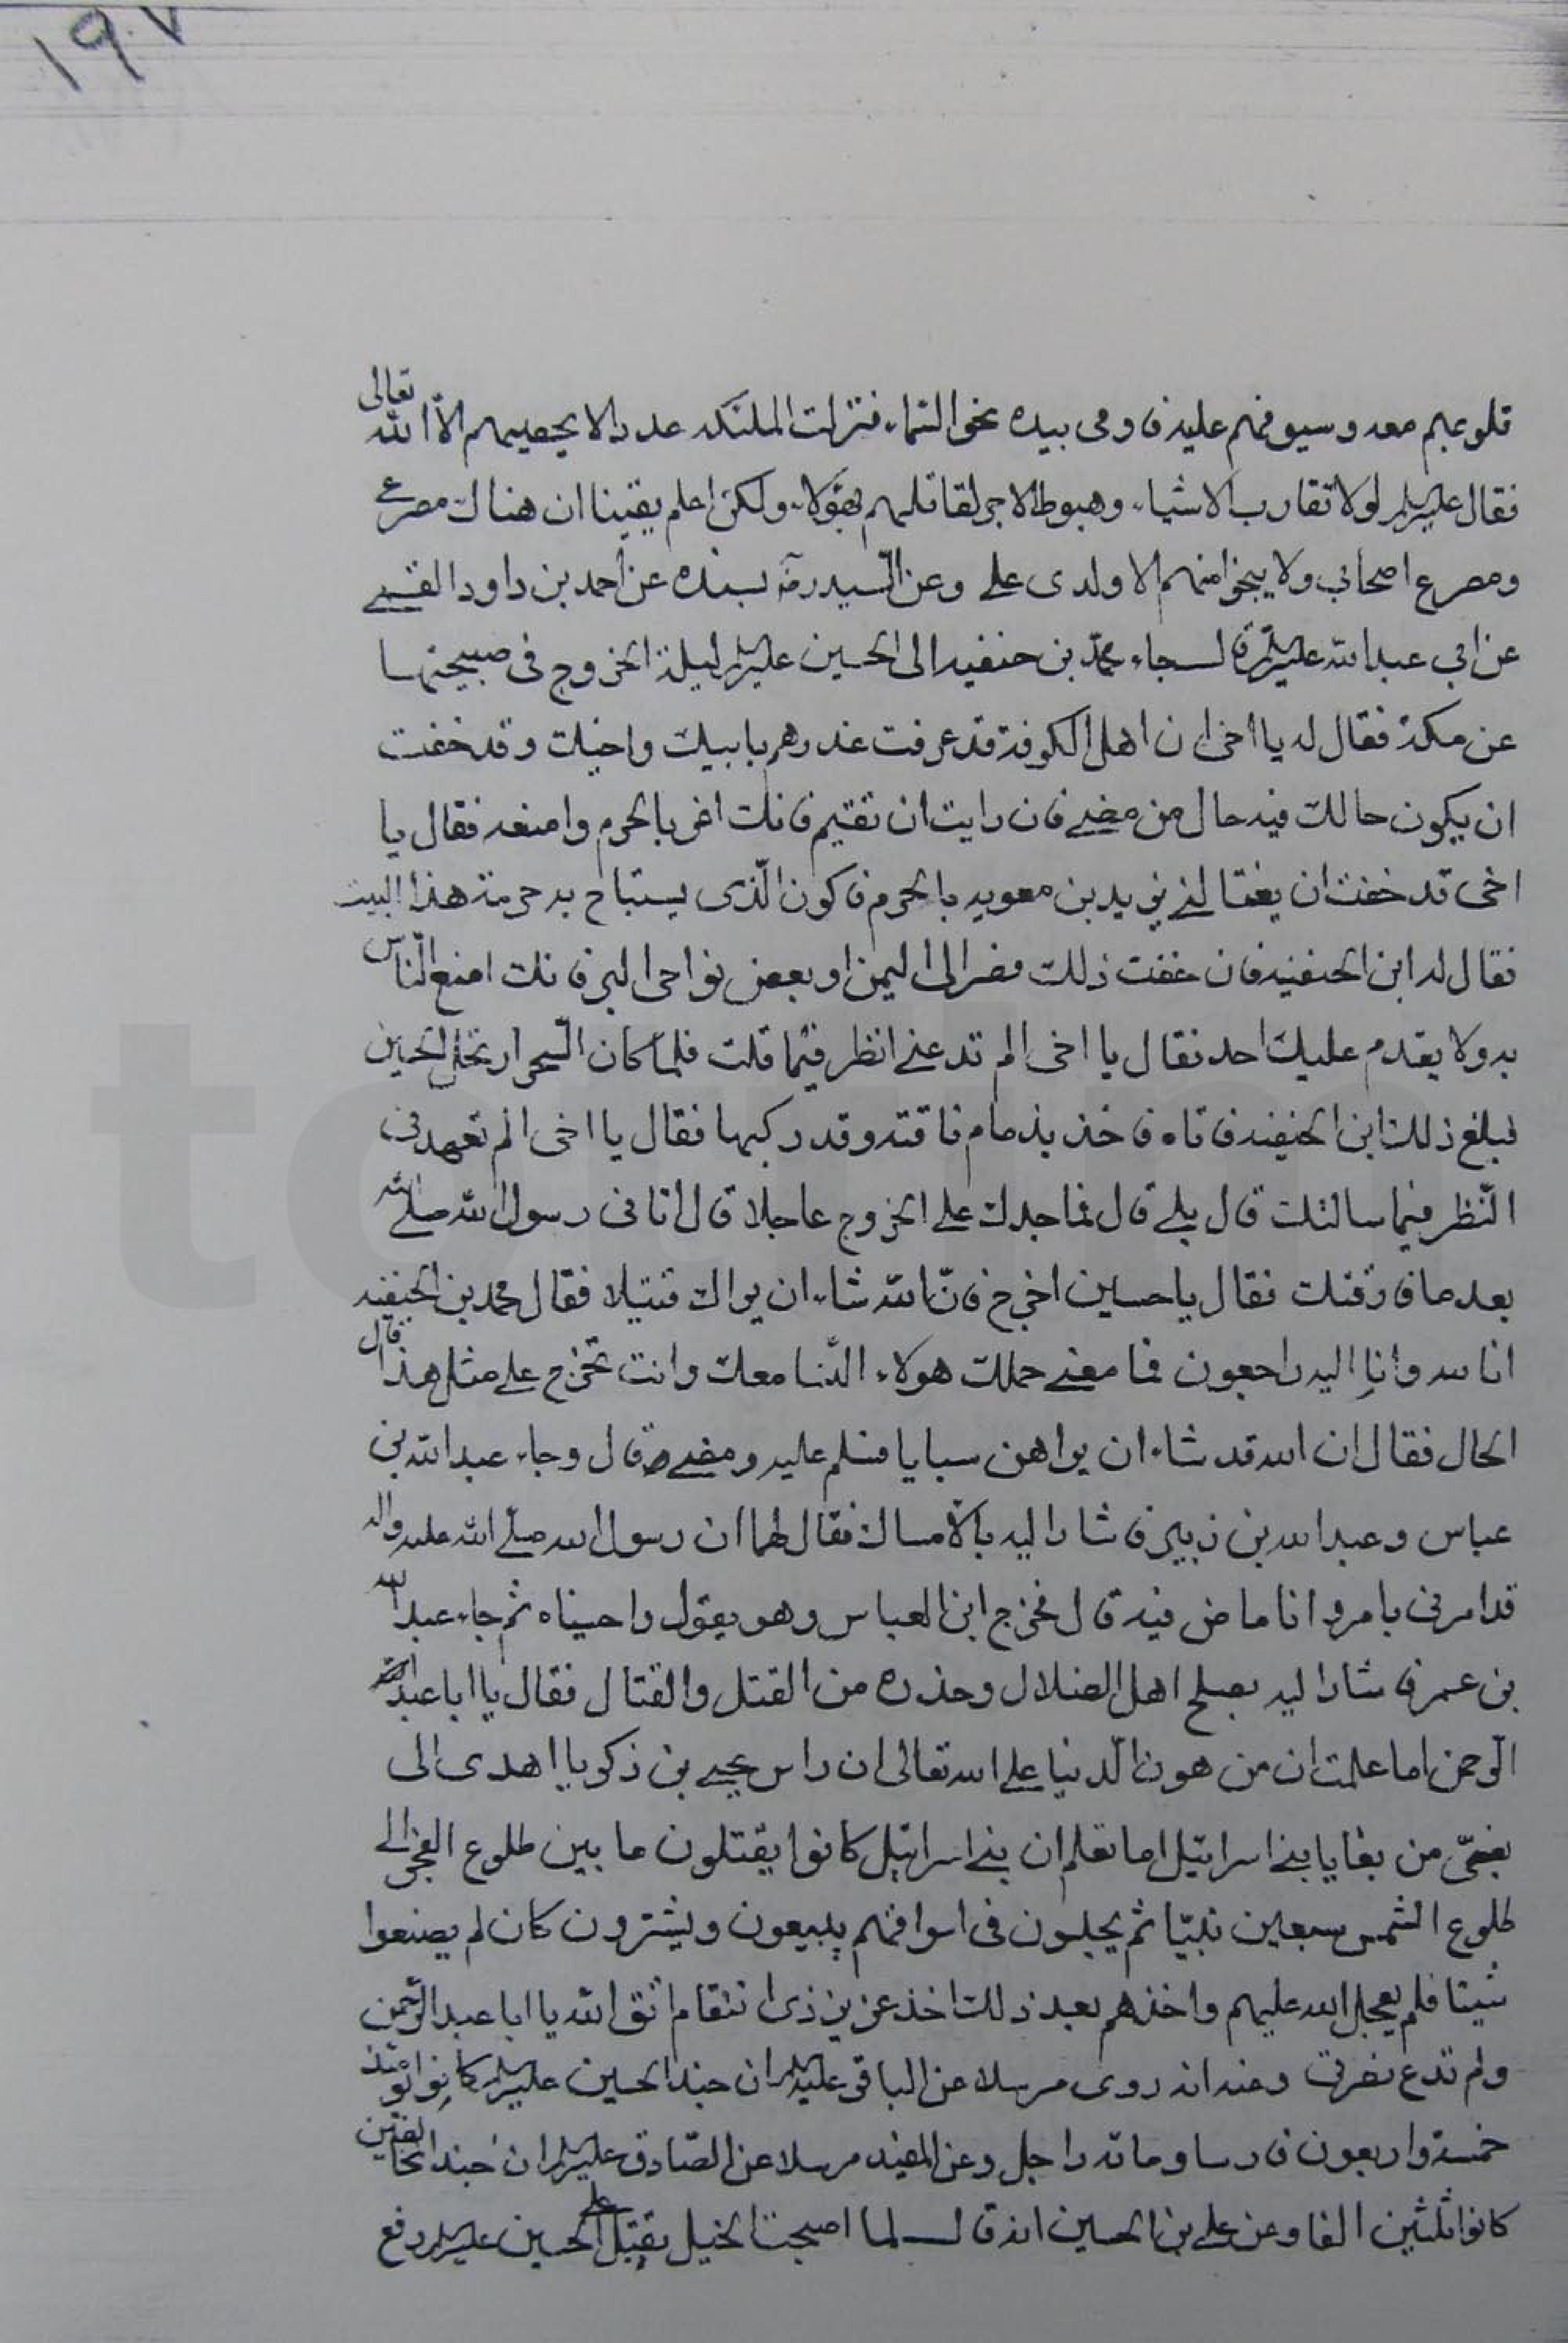 ١٩٠٧
قلوبهم معه وسيوفهم عليه فاومى بيده نحو السّماء فنزلت الملئكه عددا لا يحصيهم الّا الله تعالى
فقال عليه السلم لولا تقارب الاشياء وهبوط الاجر لقاتلهم بهؤلاء ولكن اعلم يقينا ان هناك مصرعي
ومصرع اصحابي ولا ينجوا منهم الا ولدى على وعن السّيد ره بسنده عن احمد بن داود القمى
عن ابي عبد الله عليه السلم قال جاء محمّد بن حنفيه الى الحسين عليه السلم ليلة الخروج فى صبيحتها
عن مكة فقال له يا اخى ان اهل الكوفة قد عرفت غدرهم بابيك واخيك وقد خفت
ان يكون حالك فيه حال من مضى فان رايت ان تقيم فانك اعز بالحرم وامنعه فقال يا
اخى قد خفت ان يغتالنى يزيد بن معويه بالحرم فاكون الّذى يستباح به حرمة هذا البيت
فقال له ابن الحنفيه فان خفت ذلك فصر الى اليمن او بعض نواحى البر فانك امنع النّاس
به ولا يقدم عليك احد فقال يا اخى الم تدعنى انظر فيما قلت فلمّا كان السّحر ارتحل الحسين
فبلغ ذلك ابن الحنفيه فاتاه فاخذ بذمام ناقته وقد ركبها فقال يا اخى الم تعهدنى
النّظر فيما سالتك قال بلى قال فما جدك على الخروج عاجلا قال اتانى رسول الله صلى الله
بعد ما فارقتك فقال يا حسين اخرج فانّ الله شاء ان يراك قتيلا فقال محمد بن الحنفيه
انا لله وانا اليه راجعون فما معنى حملك هولاء النّسا معك وانت تخرج على مثل هذا قال
الحال فقال ان الله قد شاء ان يراهن سبايا فسلم عليه ومضى قال وجاء عبد الله بن
عباس وعبد الله بن زبير فاشارا اليه بالامساك فقال لهما ان رسول الله صلّى الله عليه واله
قد امرنى بامر وانا ماض فيه قال فخرج ابن العباس وهو يقول واحسيناه ثم جاء عبد الله
بن عمر فاشار اليه بصلح اهل الضلال وحذره من القتل والقتال فقال يا ابا عبد
الرّحمن اما علمت ان من هون الدّنيا على الله تعالى ان راس يحيى بن زكريا اهدى الى
بغىّ من بغايا بنى اسرائيل اما تعلم ان بنى اسرائيل كانوا يقتلون ما بين طلوع الفجر الى
طلوع الشمس سبعين نبيّا ثم يجلسون فى اسواقهم يبيعون ويشترون كان لم يصنعوا
شيئا فلم يعجل الله عليهم واخذهم بعد ذلك اخذ عزيز ذى انتقام اتق الله يا ابا عبد الرّحمن
ولم تدع نصرتى وعنه انه روى مرسلا عن الباقر عليه السلم ان جند الحسين عليه السلم كانوا يومئذ
خمسة واربعون فارسا ومائه راجل وعن المفيد مرسلا عن الصّادق عليه السلم ان جند المخالفين
كانوا ثلثين الفا وعن على بن الحسين انه قال لما اصبحت الخيل يقبل على الحسين عليه السلم رفع